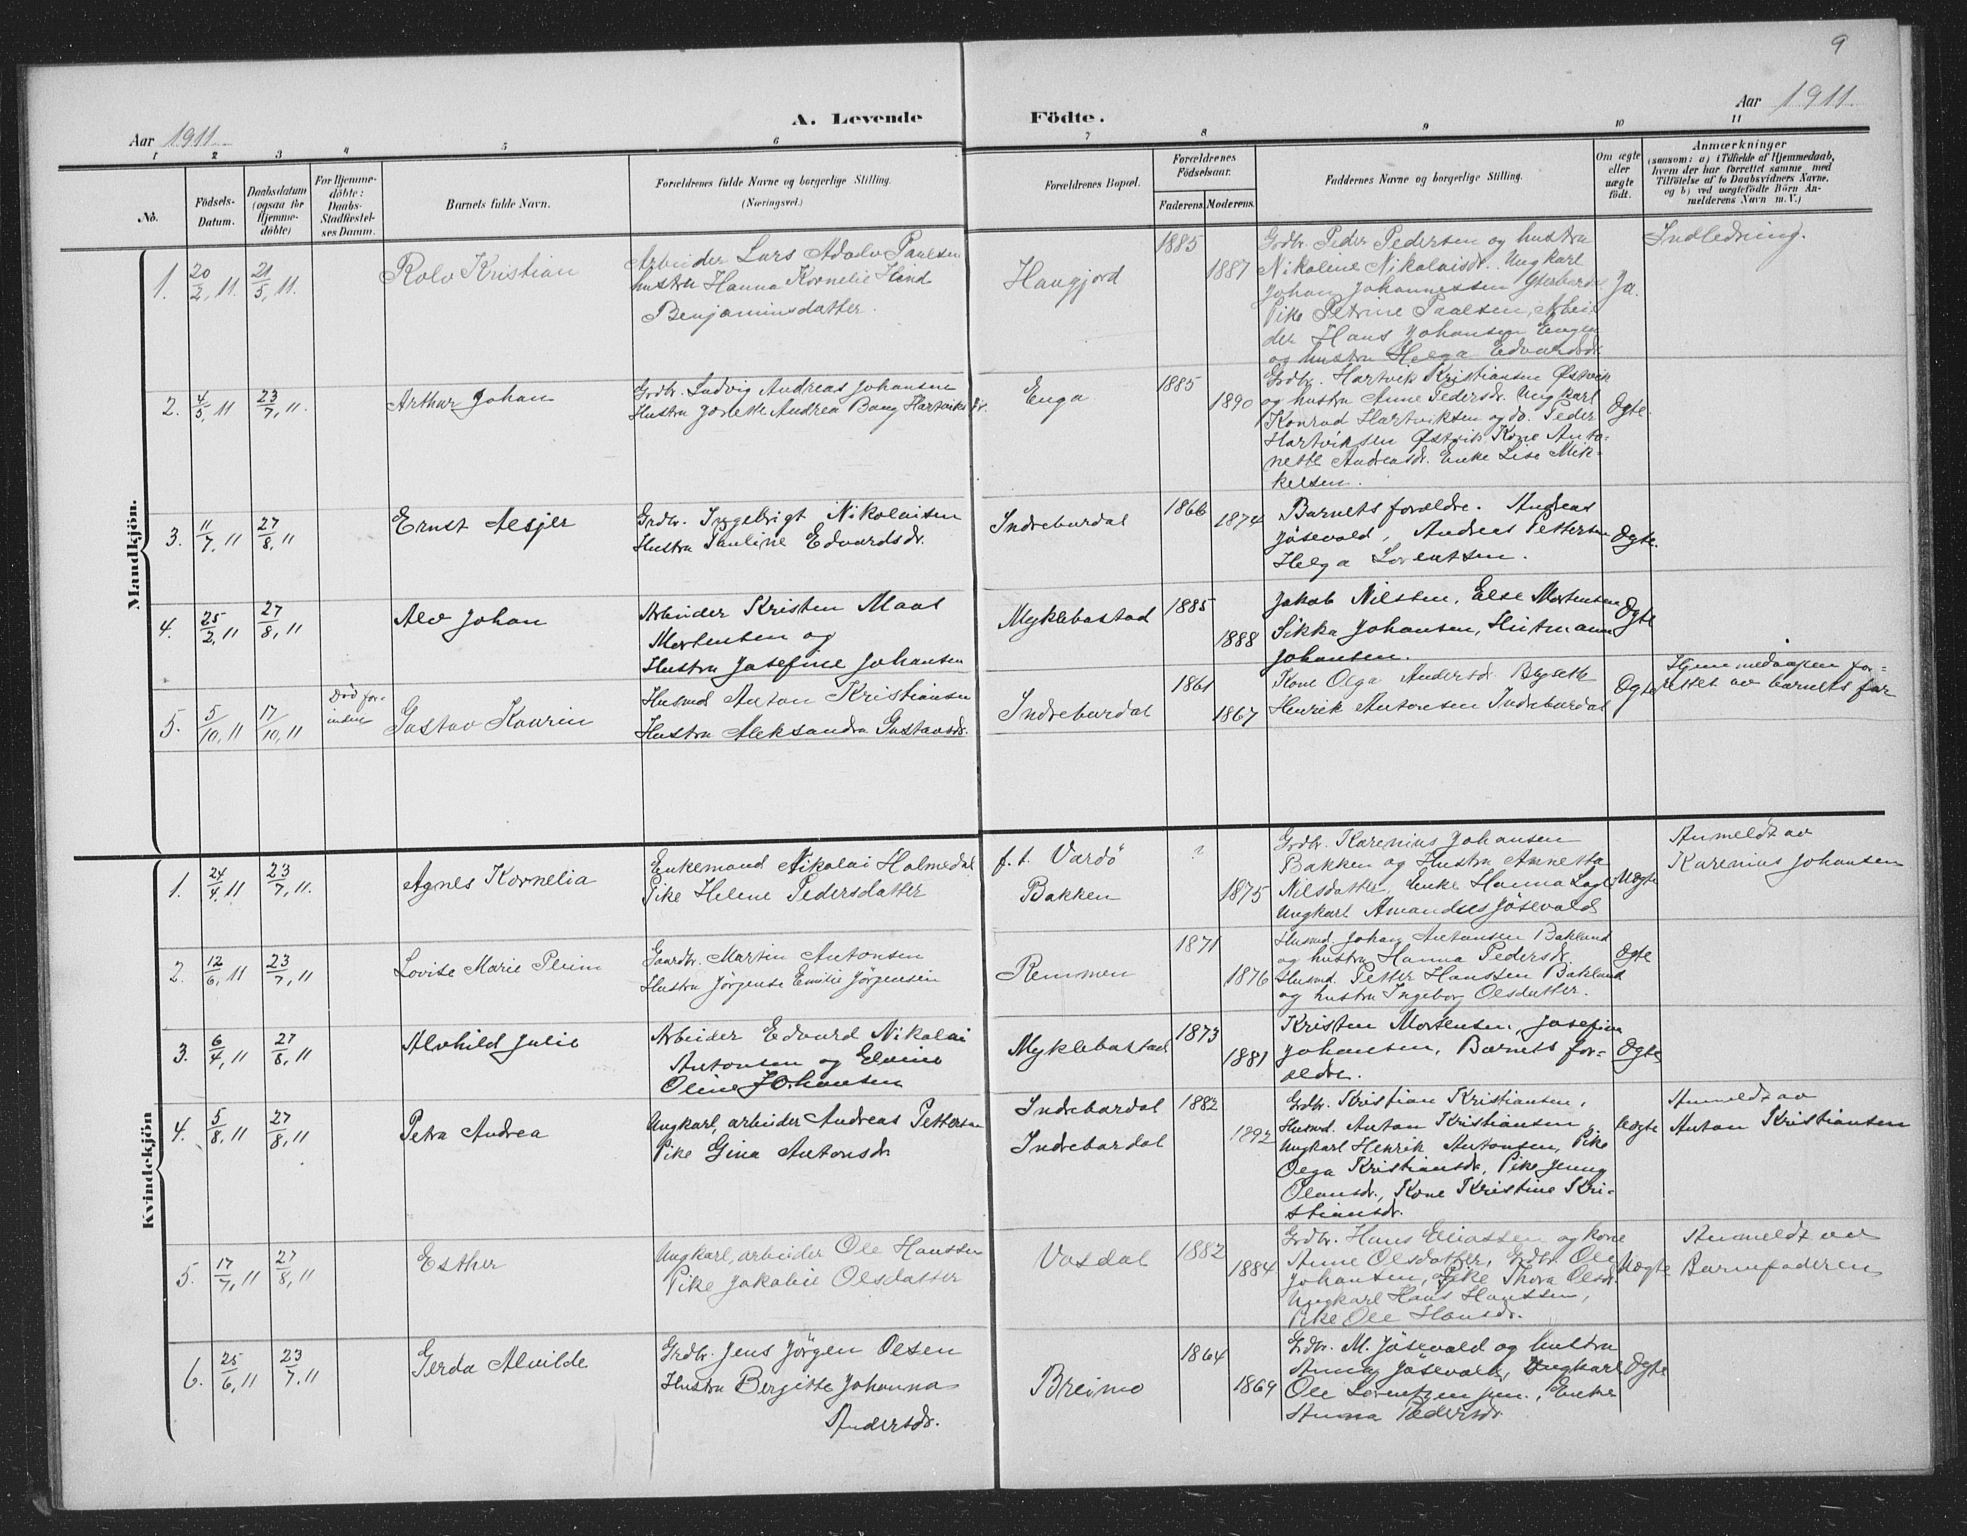 9
Aar 1911.
A. Levende Födte.
Aar 1911.
1 2 3 4 5 6 7 8 9 10 11
No.
Födsels-
Datum.
Daabsdatum
(ogsaa for
Hjemme-
döbte)
For Hjemme-
döbte:
Daabs-
Stadfæstel-
ses Datum.
Barnets fulde Navn.
Forældrenes fulde Navne og borgerlige Stilling.
(Næringsvei.)
Forældrenes Bopæl.
Forældrenes
Födselsaar.
Faderens. Moderens.
Faddernes Navne og borgerlige Stilling.
Om ægte
eller
uægte
födt.
Anmærkninger
(saasom: a) i Tilfælde af Hjemmedaab,
hvem der har forrettet samme, med
Tilföielse af to Daabsvidners Navne,
og b) ved uægtefödte Börn An-
melderens Navn m. V.)
Mandkjön.
1. 20/2, 11. 21/5, 11.
Rolv Kristian
Arbeider Lars Adolv Paulsen
hustru Hanna Kornelie Hind
Benjaminsdatter.
Haugjord
1885
1887
Grdbr. Peder Pedersen og hustru
Nikoline Nikolaisdr. Ungkarl
Johan Johannessen Ytterbardal
Pike Petrine Paalsen, Arbei-
der Hans Johansen Engen
og hustru Helga Edvardsdr.
Ja.
Indledning.
2. 4/5, 11 23/7, 11.
Arthur Johan
Grdbr. Ludvig Andreas Johansen
Hustru Andrea Bang Hartviksdr.
Enga
1885
1890
Grdbr. Hartvik Kristiansen Østvik
og hustru Anne Pedersdr. Ungkarl
Konrad Hartviksen og do. Peder
Hartviksen Østvik, Kone Anto-
nette Andreasdr. Enke Lise Mik-
kelsen.
Ægte.
3. 11/7, 11 27/8, 11
Ernst Aesjer
Grdbr. Inggebrigt Nikolaisen
Hustru Pauline Edvardsdr.
Indrebardal
1866
1874
Barnets forældre. Andreas
Jösevold, Andreas Pettersen
Helga Lorentsen.
Ægte.
4. 25/2, 11 27/8, 11
Alv Johan
Arbeider Kristen Maas
Mortensen og
Hustru Josefine Johansen
Myklebostad
1885
1888
Jakob Nilsen, Else Mortensen
Sikka Johansen, Hartmann
Johansen.
Ægte
5. 5/10, 11 17/10, 11
Död for-
inden
Gustav Kaurin
Husmd Anton Kristiansen
Hustru Aleksandra Gustavsdr.
Indrebardal
1861
1867
Kone Olga Andersdr.
Henrik Antonsen Indrebardal
Ægte
Hjemmedaapen for-
rettet av barnets far
Kvindekjön
1. 24/4, 11 23/7, 11.
Agnes Kornelia
Enkemand Nikolai Holmedal
Pike Helene Pedersdatter
f. t. Vardö
Bakken
?
1875
Grdbr. Karenius Johansen
Bakken og Hustru Annetta
Nilsdatter, Enke Hanna
Ungkarl Amandus Jösevold
Uægte
Anmeldt av
Karenius Johansen
2. 12/6, 11 23/7, 11
Lovise Marie Prim
Gaardbr. Martin Antonsen
Hustru Jörgense Emilie Jörgensen
Remmen
1871
1876
Husmd. Johan Antonsen Bakland
og hustru Hanna Pedersdr.
Husmd. Petter Hanssen Bakland
og hustru Ingeborg Olsdatter.
Ægte
3. 6/4, 11 27/8, 11
Alvhild Julie
Arbeider Edvard Nikolai
Antonsen og Elvine
Oline Johansen
Myklebostad
1873
1881
Kristen Mortensen, Josefine
Johansen, Barnets for-
ældre.
Ægte
4. 5/8, 11 27/8, 11
Petra Andrea
Ungkarl, arbeider Andreas Pettersen
Pike Gina Antonsdr
Indrebardal
Indrebardal
1882
1892
Grdbr. Kristian Kristiansen,
Husmd. Anton Kristiansen
Ungkarl Henrik Antonsen, Pike
Olga Kristiansdr, Pike Jenny
Olausdr., Kone Kristine Kri-
stiansdr.
Uægte
Anmeldt av
Anton Kristiansen
5. 17/7, 11 27/8, 11
Esther
Ungkarl, arbeider Ole Hanssen
Pike Jakobie Olsdatter
Vasdal
1882
1884
Grdbr. Hans Eliassen og kone
Anne Olsdatter, Grdbr. Ole
Johansen, Pike Thora Olsdr.
Ungkarl Hans Hanssen,
Pike Ole Hansdr.
Uægte
Anmeldt av
Barnefaderen
6. 25/6, 11 23/7, 11
Gerda Alvilde
Grdbr. Jens Jörgen Olsen
Hustru Bergitte Johanna
Andersdr.
Breimo
1864
1869
Grdbr. M. Jösevold og hustru
Anna Jösevold, Ungkarl
Ole Lorentzen jun., Enke
Anna Pedersdr
Ægte